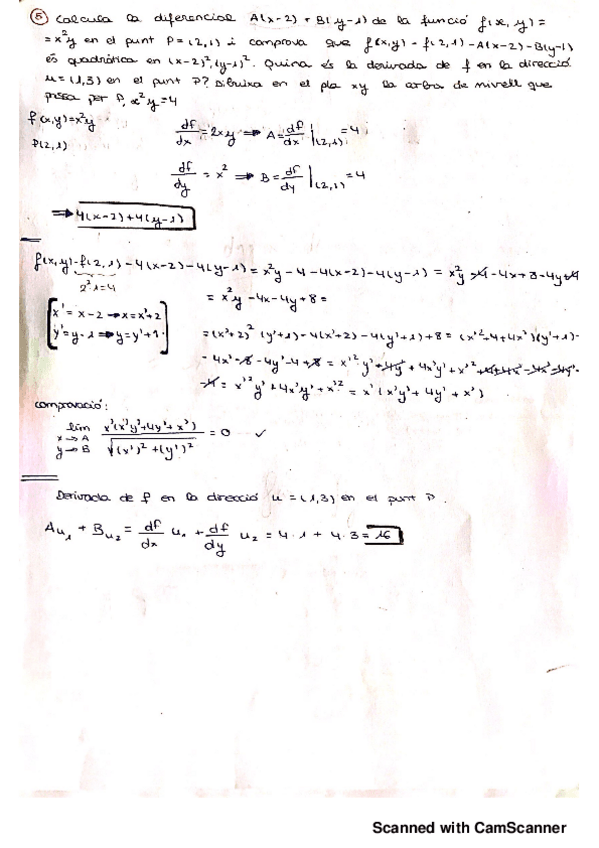 ⑧ Calcula la diferencial A(x-2) + B(y-1) de la funció f(x, y) =
= x²y en el punt P = (2,1) i comprova que f(x,y) - f(2,1) - A(x-2) - B(y-1)
és quadràtica en (x-2)², (y-1)². Quina és la derivada de f en la direcció
u = (1,3) en el punt P? Dibuixa en el pla xy la corba de nivell que
passa per P, x²y = 4
f(x,y) = x²y
P(2,1)
df/dx = 2xy ⇒ A = df/dx |(2,1) = 4
df/dy = x² ⇒ B = df/dy |(2,1) = 4
⇒ 4(x-2) + 4(y-1)
f(x,y) - f(2,1) - 4(x-2) - 4(y-1) = x²y - 4 - 4(x-2) - 4(y-1) = x²y - 4 - 4x + 8 - 4y + 4
2²·1 = 4
= x²y - 4x - 4y + 8 =
x' = x - 2 → x = x' + 2
y' = y - 1 ⇒ y = y' + 1
= (x'+2)² (y'+1) - 4(x'+2) - 4(y'+1) + 8 = (x'² + 4 + 4x')(y'+1) -
- 4x' - 8 - 4y' - 4 + 8 = x'²y' + 4y' + 4x'y' + x'² + 4 + 4x' - 4x' - 4y' -
- 4 = x'²y' + 4x'y' + x'² = x'(x'y' + 4y' + x')
comprovació:
lim x→A y→B x'(x'y' + 4y' + x') / √((x')² + (y')²) = 0 ✓
Derivada de f en la direcció u = (1,3) en el punt P.
Au₁ + Bu₂ = df/dx u₁ + df/dy u₂ = 4·1 + 4·3 = 16
Scanned with CamScanner